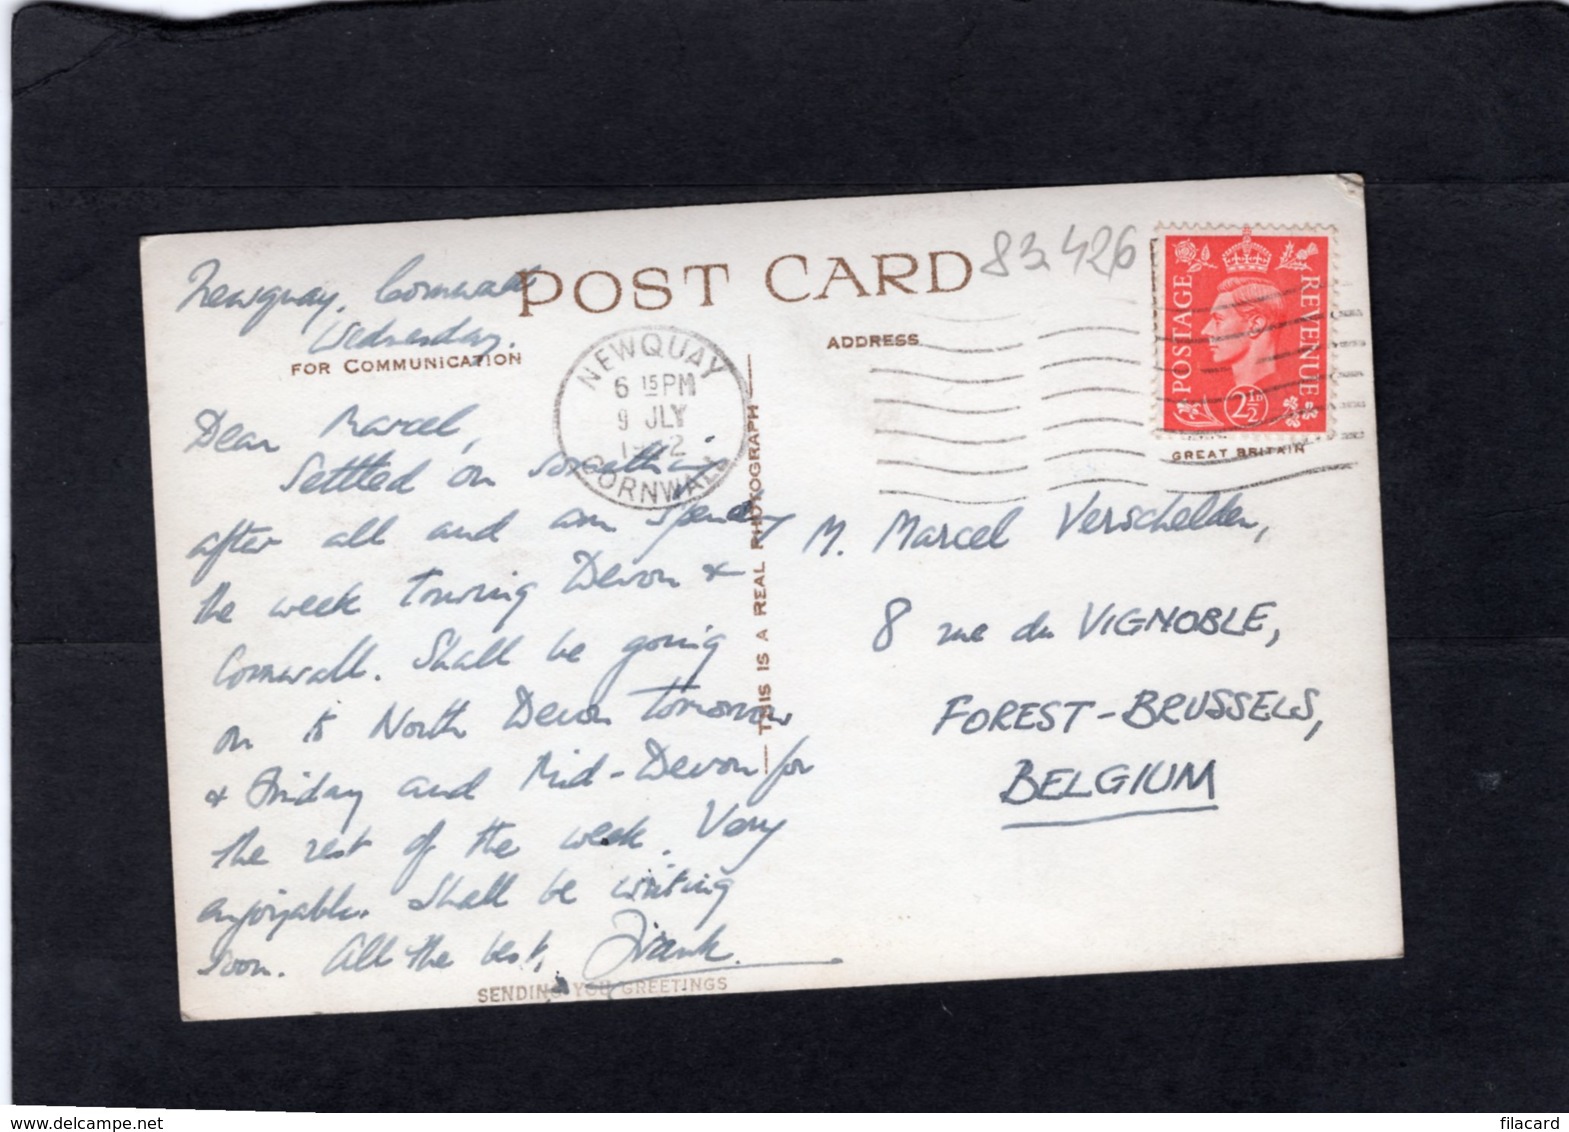 Newquay, Cornwall
Wednesday.
POST CARD
83426
FOR COMMUNICATION
ADDRESS
NEWQUAY
6 15 PM
9 JLY
CORNWALL
POSTAGE
REVENUE
2½D
GREAT BRITAIN
Dear Marcel,
Settled on something
after all and am spend
the week touring Devon &
Cornwall. Shall be going
on to North Devon tomorrow
& Friday and Mid-Devon for
the rest of the week. Very
enjoyable. Shall be writing
soon. All the best, Frank.
THIS IS A REAL PHOTOGRAPH
M. Marcel Verschelden,
8 rue du VIGNOBLE,
FOREST-BRUSSELS,
BELGIUM
SENDING YOU GREETINGS
www.delcampe.net
filacard